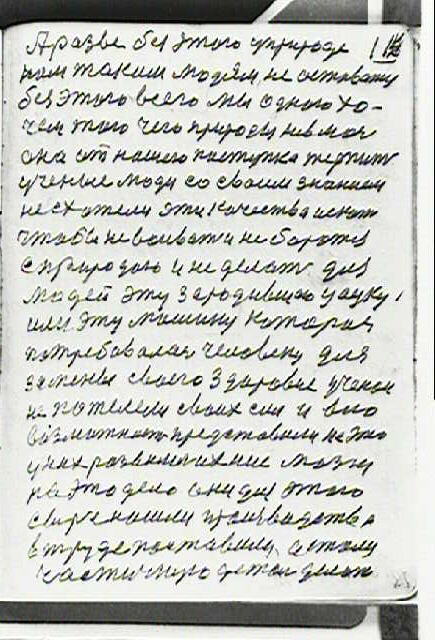 А разве без этого в природе
нам таким людям не
без этого всего мы одного хо-
чем того чего природы
она от нашего поступка терпит
ученые люди со своим знанием
не схотели эти качества искать
чтобы не воевать и не бороться
с природою и не делать для
людей эту зародившаю науку
или эту машину которая
потребовалась человеку для
замены своего здоровие ученои
не потеели своих сил и
возможность представили на это
у них их ние мозги
на это дело они для этого
сырье нашли производства
в труде поставили, а стали
частичную детал делат